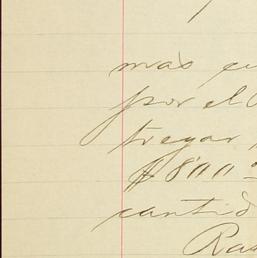 mas
por el
tregar
$800
cantid